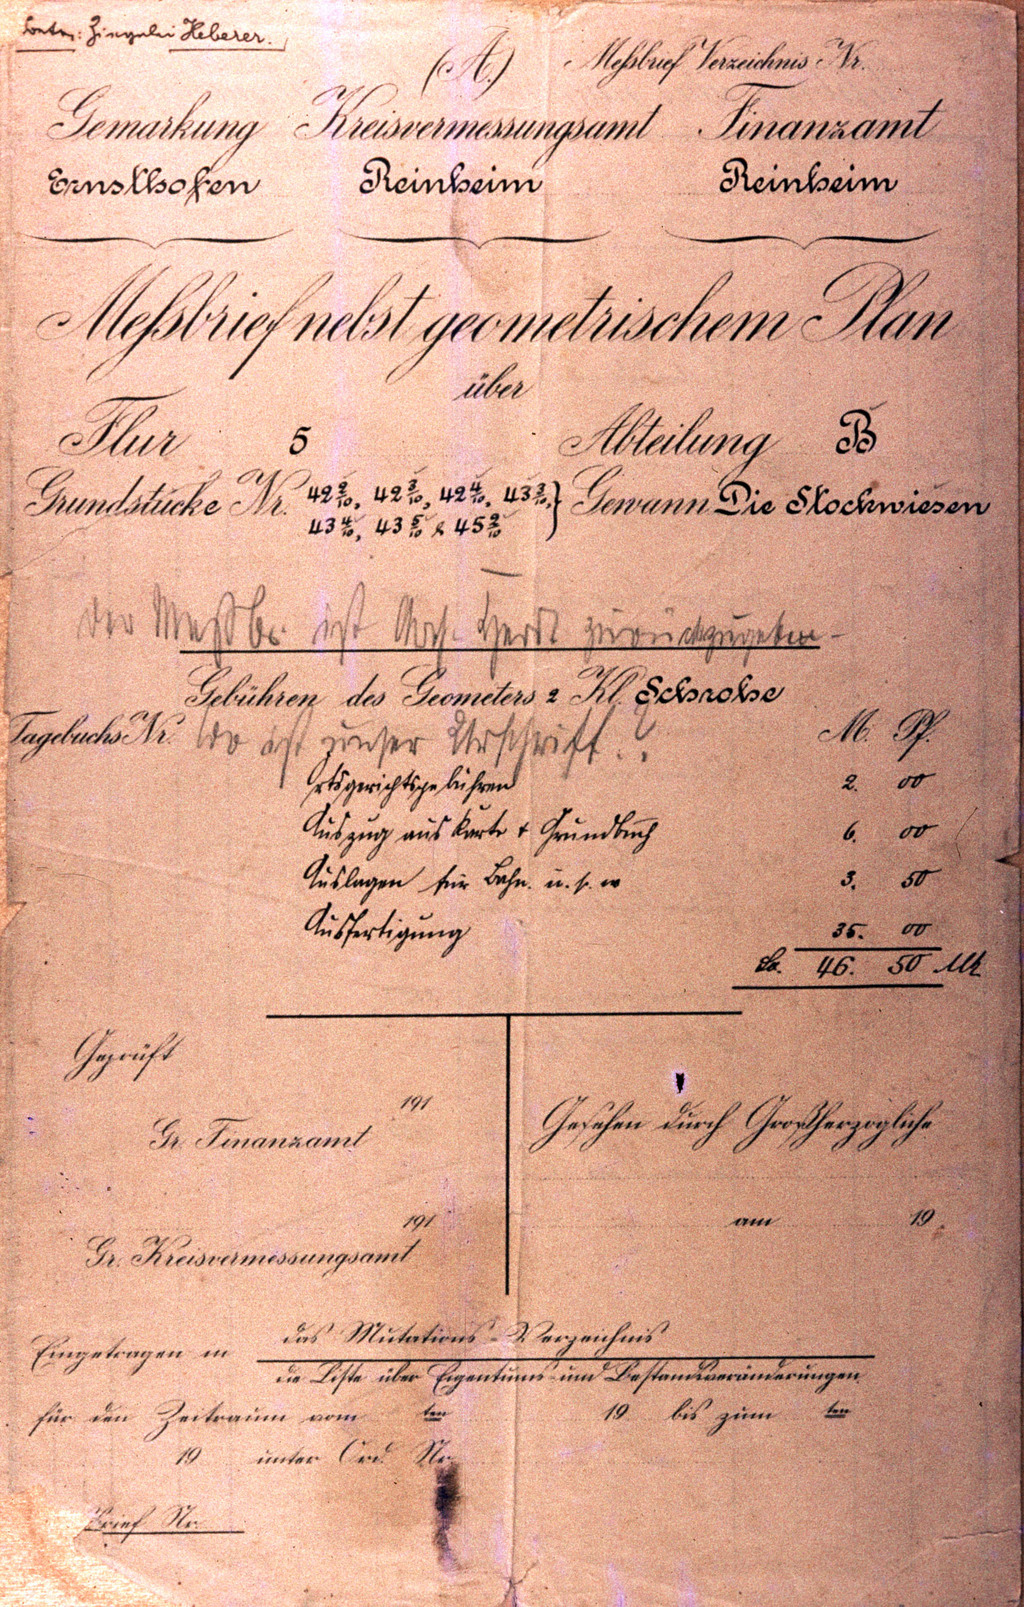 Betr.: Ziegelei Heberer.
(A.) Meßbrief Verzeichnis Nr.
Gemarkung Kreisvermessungsamt Finanzamt
Ernsthofen Reinheim Reinheim
Meßbrief nebst geometrischem Plan
über
Flur 5 Abteilung B
Grundstücke Nr. 42 2/10, 42 3/10, 42 4/10, 43 3/10, } Gewann Die Stockwiesen
43 4/10, 43 5/10 & 45 2/10
Der Meßbr. ist zurückzugeben
Gebühren des Geometers 2 Kl.
Tagebuchs Nr. Wo ist unser Urschrift.? M. Pf.
Ortsgerichtsgebühren 2. 00
Auszug aus Karte + Grundbuch 6. 00
Auslagen für Bahn. u. s. w 3. 50
Ausfertigung 35. 00
Sa. 46. 50 Mk
Geprüft
191
Gr. Finanzamt
Gesehen durch Großherzogliche
191
am 19
Gr. Kreisvermessungsamt
das Mutations-Verzeichnis
Eingetragen in
die Liste über Eigentums- und Bestandsveränderungen
für den Zeitraum vom ten 19 bis zum ten
19 unter Ord. Nr.
Brief Nr.